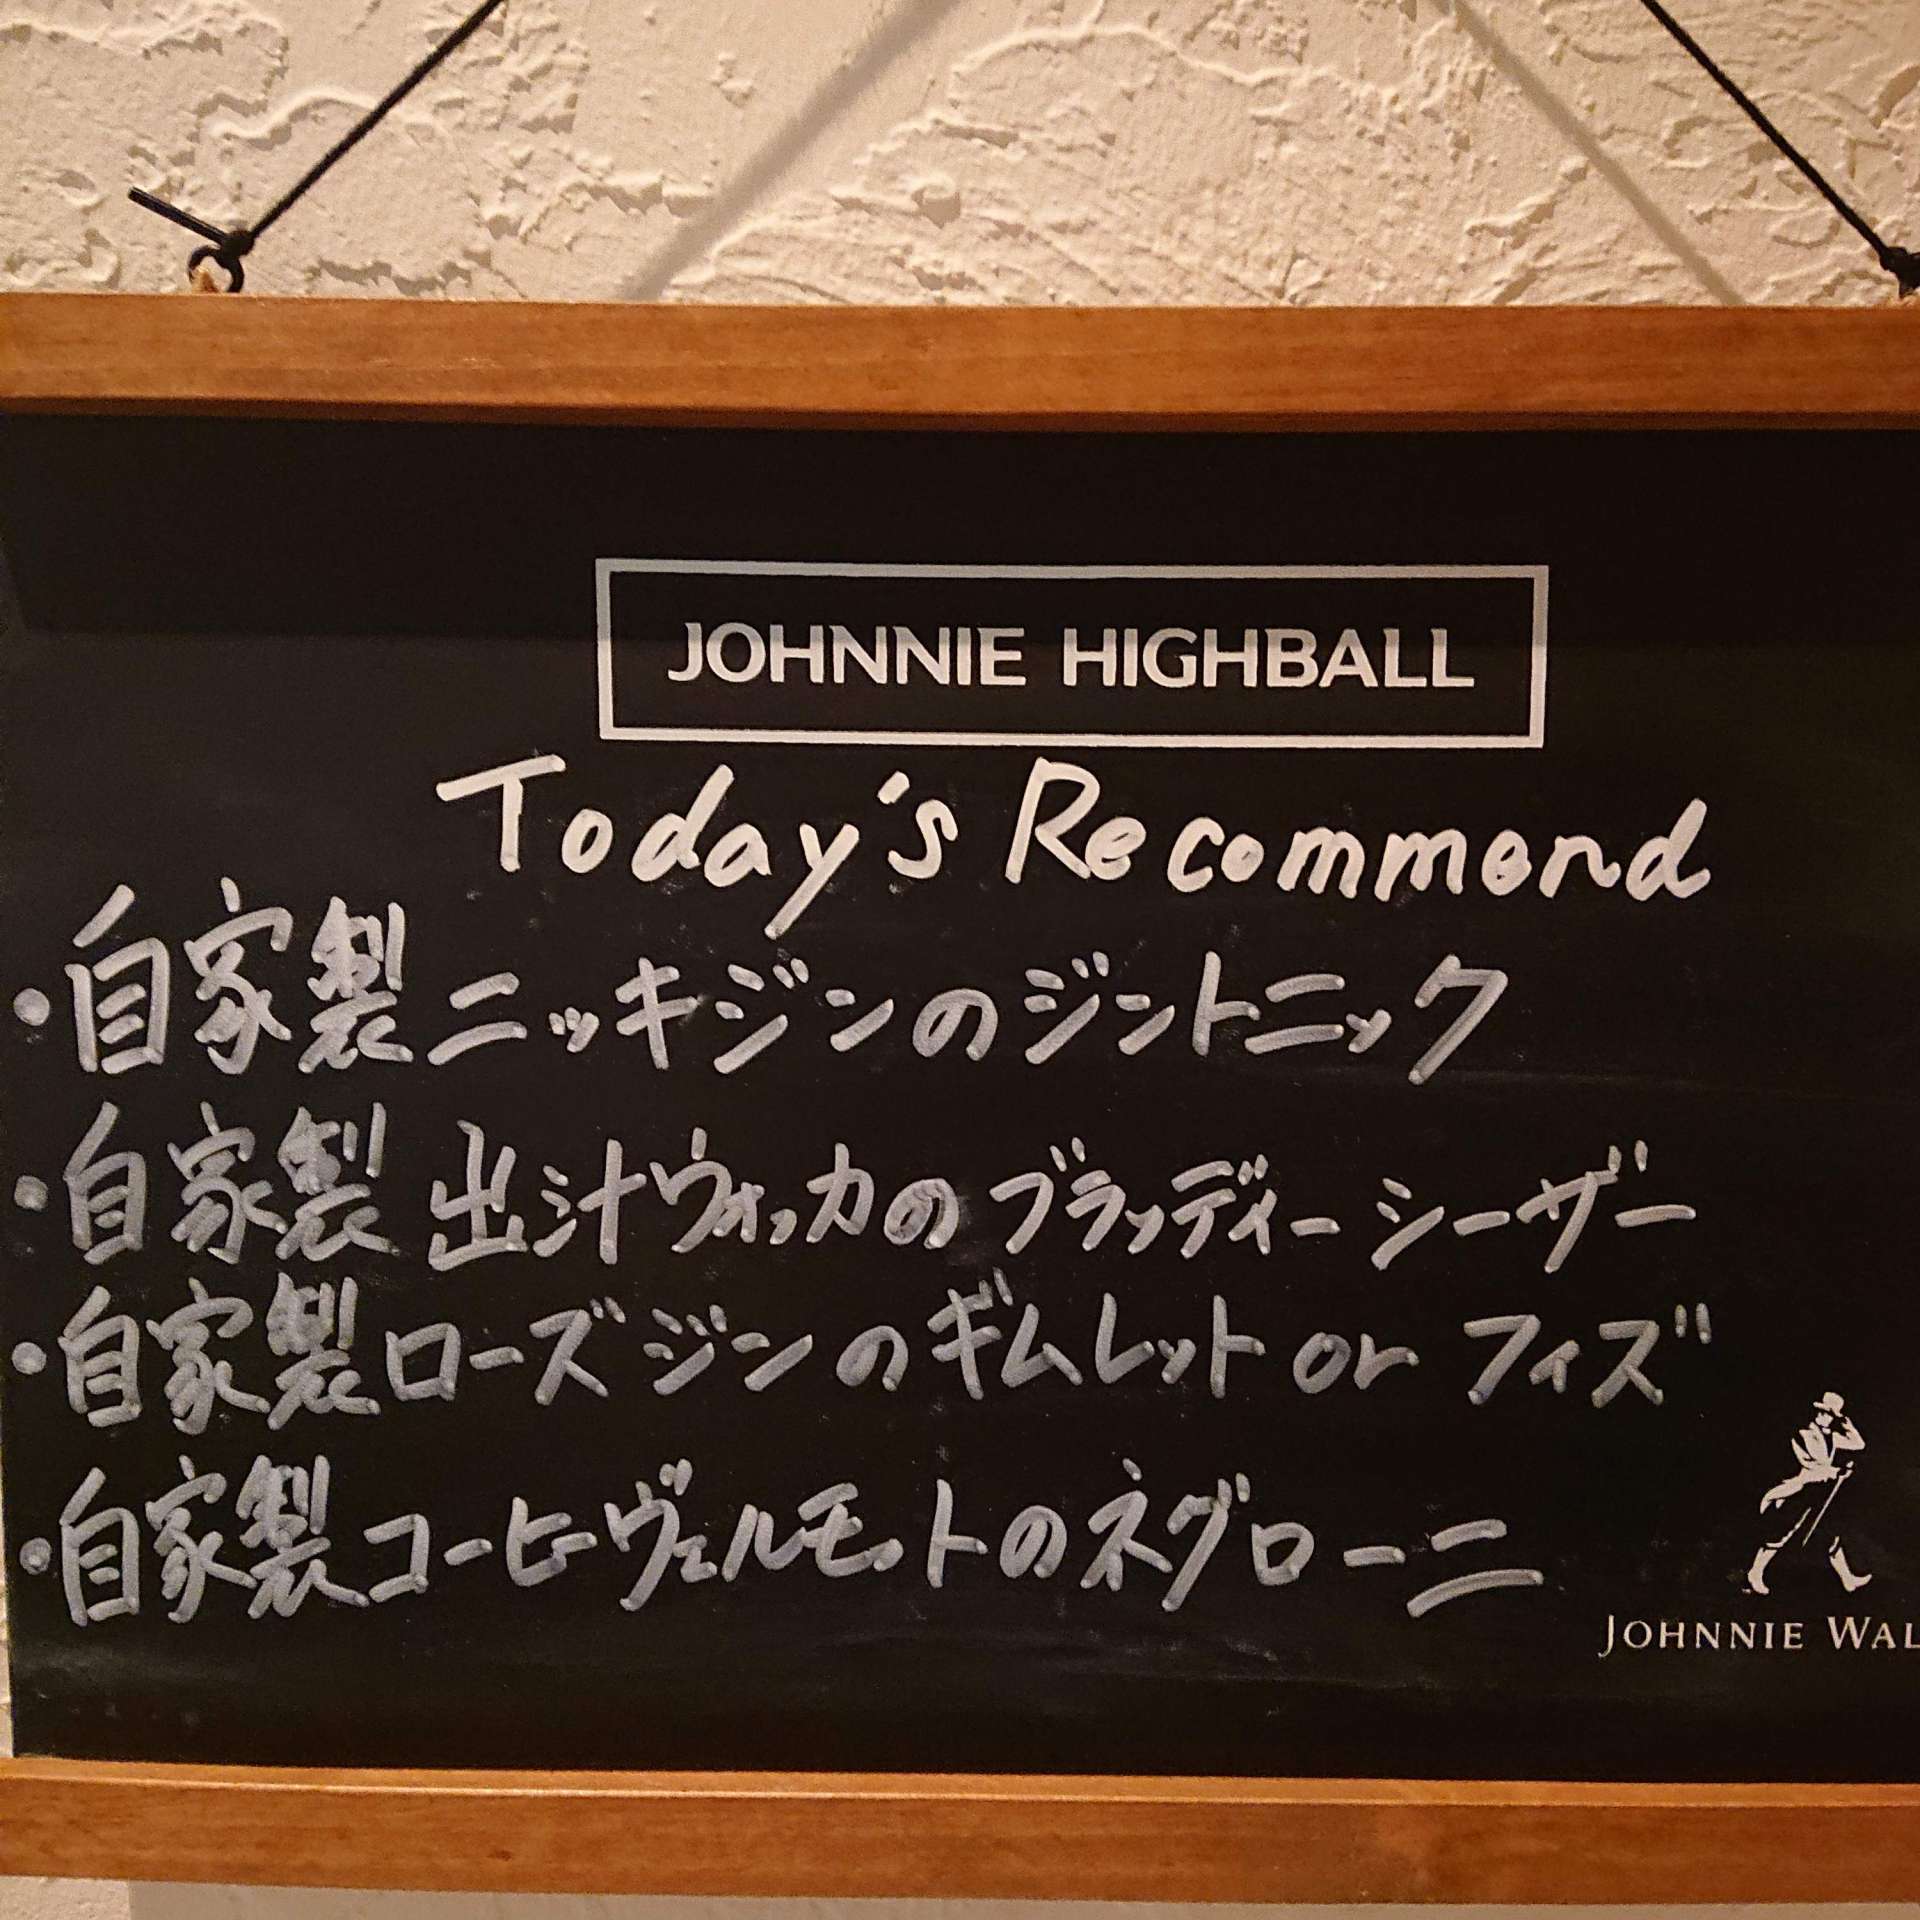 JOHNNIE HIGHBALL
Today's Recommend
・自家製ニッキジンのジントニック
・自家製 出汁ウォッカのブラッディーシーザー
・自家製ローズジンのギムレット or フィズ
・自家製コーヒーヴェルモットのネグローニ
JOHNNIE WAL